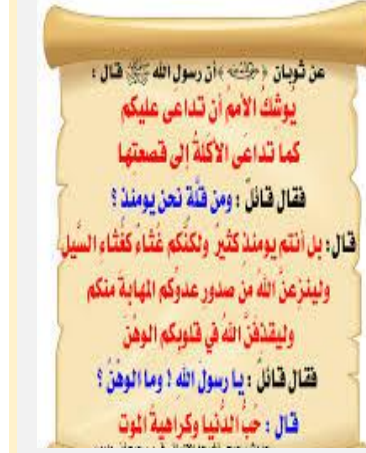 عن ثوبان ﴿رضي الله عنه﴾ أن رسول الله ﷺ قال :
يوشكُ الأممُ أن تداعى عليكم
كما تداعَى الأكَلةُ إلى قصعتِها
فقال قائلٌ : ومن قلَّة نحن يومئذ ؟
قال : بل أنتم يومئذ كثيرٌ ولكنَّكم غُثاءٌ كغُثاءِ السَّيل
ولينزعنَّ اللهُ من صدورِ عدوِّكم المهابةَ منكم
وليقذفنَّ اللهُ في قلوبِكم الوهْن
فقال قائلٌ : يا رسولَ الله ! وما الوهْنُ ؟
قال : حُبُّ الدُّنيا وكراهيةُ الموت